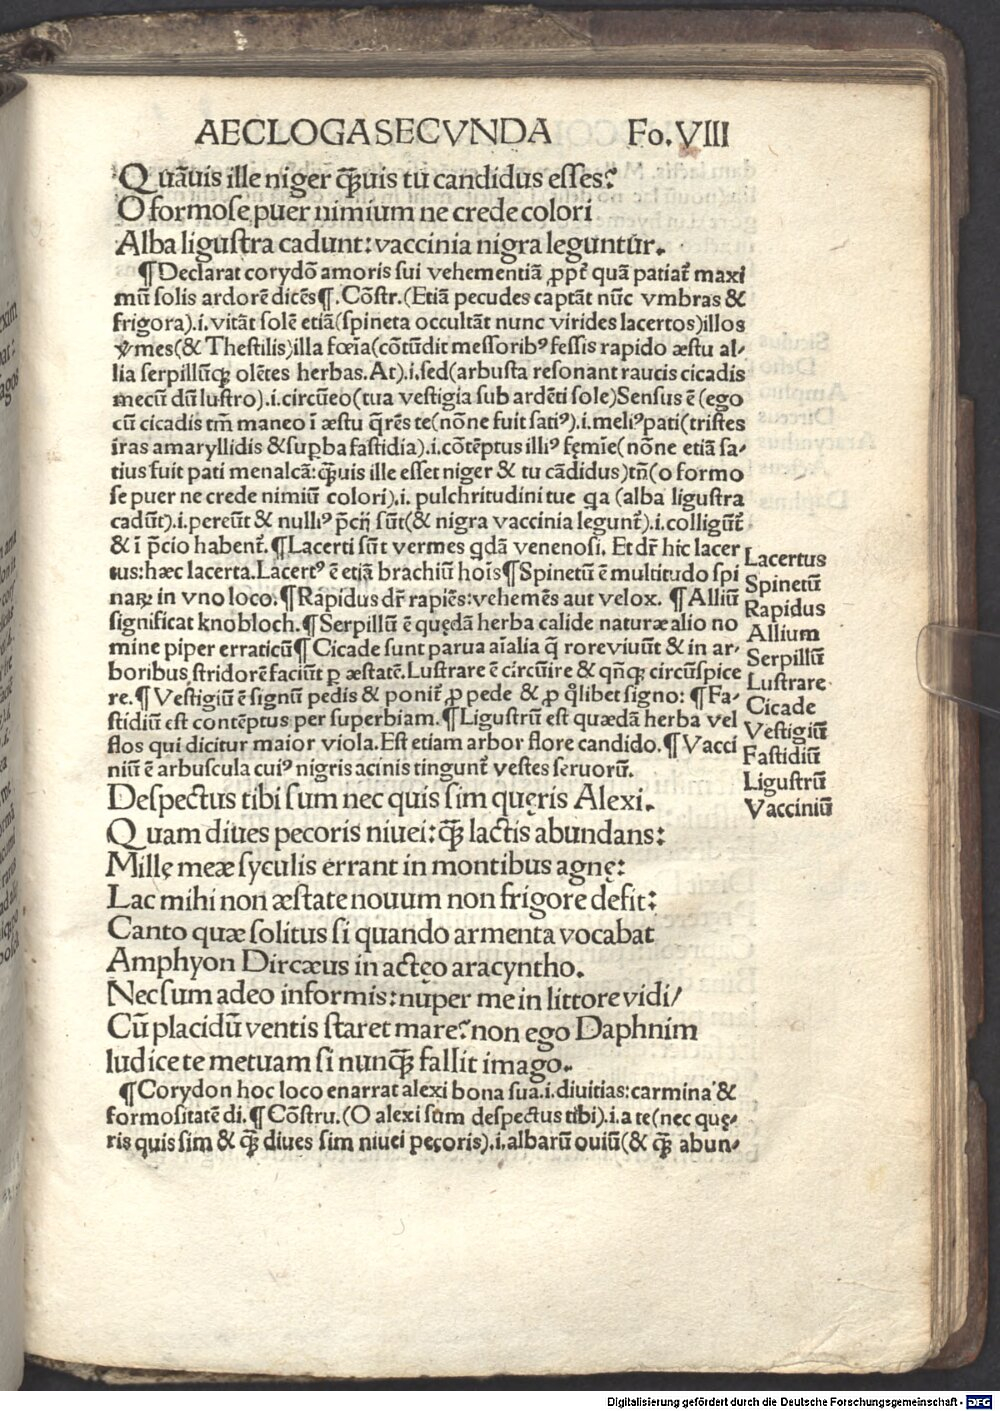 AECLOGA SECVNDA Fo. VIII
Quãuis ille niger q̃ꝫuis tu candidus esses?
O formose puer nimium ne crede colori
Alba ligustra cadunt: vaccinia nigra leguntur.
¶Declarat corydõ amoris sui vehementiã ꝓpt̃ quã patiat̃ maxi
mũ solis ardorẽ dicẽs¶. Cõstr. (Etiã pecudes captãt nũc vmbras &
frigora).i. vitãt solẽ etiã (spineta occultãt nunc virides lacertos) illos
v̾mes (& Thestilis) illa fœĩa (cõtũdit messorib⁹ fessis rapido æstu al-
lia serpillũqꝫ olẽtes herbas. At).i. sed (arbusta resonant raucis cicadis
mecũ dũ lustro).i. circũeo (tua vestigia sub ardẽti sole) Sensus ẽ (ego
cũ cicadis tm̃ maneo ĩ æstu q̃rẽs te (nõne fuit sati⁹).i. meli⁹ pati (tristes
iras amaryllidis & suꝑba fastidia).i. cõtẽptus illi⁹ fęmĩe (nõne etiã sa-
tius fuit pati menalcã: q̃ꝫuis ille esset niger & tu cãdidus) tñ (o formo
se puer ne crede nimiũ colori).i. pulchritudini tue qa (alba ligustra
cadũt).i. pereũt & nulli⁹ p̃cij sũt (& nigra vaccinia legunt̃).i. colligũt̃
& ĩ p̃cio habent̃. ¶Lacerti sũt vermes qdã venenosi. Et dr̃ hic lacer
tus: hæc lacerta. Lacert⁹ ẽ etiã brachiũ hoĩs ¶Spinetũ ẽ multitudo spi
naꝝ in vno loco. ¶Rapidus dr̃ rapiẽs: vehemẽs aut velox. ¶Alliũ
significat knobloch. ¶Serpillũ ẽ quędã herba calide naturæ alio no
mine piper erraticũ ¶Cicade sunt parua aĩalia q̃ rore viuũt & in ar-
boribus stridorẽ faciũt ꝑ æstatẽ. Lustrare ẽ circũire & qñqꝫ circũspice
re. ¶Vestigiũ ẽ signũ pedis & ponit̃ ꝓ pede & ꝓ q̃libet signo: ¶Fa-
stidiũ est contẽptus per superbiam. ¶Ligustrũ est quædã herba vel
flos qui dicitur maior viola. Est etiam arbor flore candido. ¶Vacci
niũ ẽ arbuscula cui⁹ nigris acinis tingunt̃ vestes seruorũ.
Lacertus
Spinetũ
Rapidus
Allium
Serpillũ
Lustrare
Cicade
Vestigiũ
Fastidiũ
Ligustrũ
Vacciniũ
Despectus tibi sum nec quis sim quęris Alexi.
Quam diues pecoris niuei: q̃ꝫ lactis abundans:
Millę meæ syculis errant in montibus agnę:
Lac mihi non æstate nouum non frigore defit:
Canto quæ solitus si quando armenta vocabat
Amphyon Dircæus in actęo aracyntho.
Nec sum adeo informis: nuper me in littore vidi/
Cũ placidũ ventis staret mare? non ego Daphnim
Iudice te metuam si nunq̃ꝫ fallit imago.
¶Corydon hoc loco enarrat alexi bona sua .i. diuitias: carmina &
formositatẽ di. ¶Cõstru. (O alexi sum despectus tibi).i. a te (nec quę-
ris quis sim & q̃ꝫ diues sim niuei pecoris).i. albarũ ouiũ (& q̃ꝫ abun-
Digitalisierung gefördert durch die Deutsche Forschungsgemeinschaft - DFG